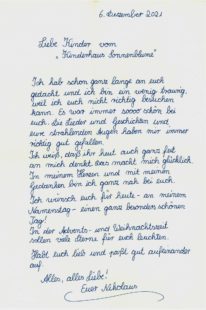 6. Dezember 2021
Liebe Kinder vom
„Kinderhaus Sonnenblume"
Ich hab schon ganz lange an euch
gedacht und ich bin ein wenig traurig,
weil ich euch nicht richtig besuchen
kann. Es war immer soooo schön bei
euch. Die Lieder und Geschichten und
eure strahlenden Augen haben mir immer
richtig gut gefallen.
Ich weiß, daß ihr heut auch ganz fest
an mich denkt. Das macht mich glücklich.
In meinem Herzen und mit meinen
Gedanken bin ich ganz nah bei euch.
Ich wünsch euch für heute - an meinem
Namenstag - einen ganz besonders schönen
Tag!
In der Advents- und Weihnachtszeit
sollen viele Sterne für euch leuchten.
Habt euch lieb und paßt gut aufeinander
auf.
Alles, alles Liebe!
Euer Nikolaus